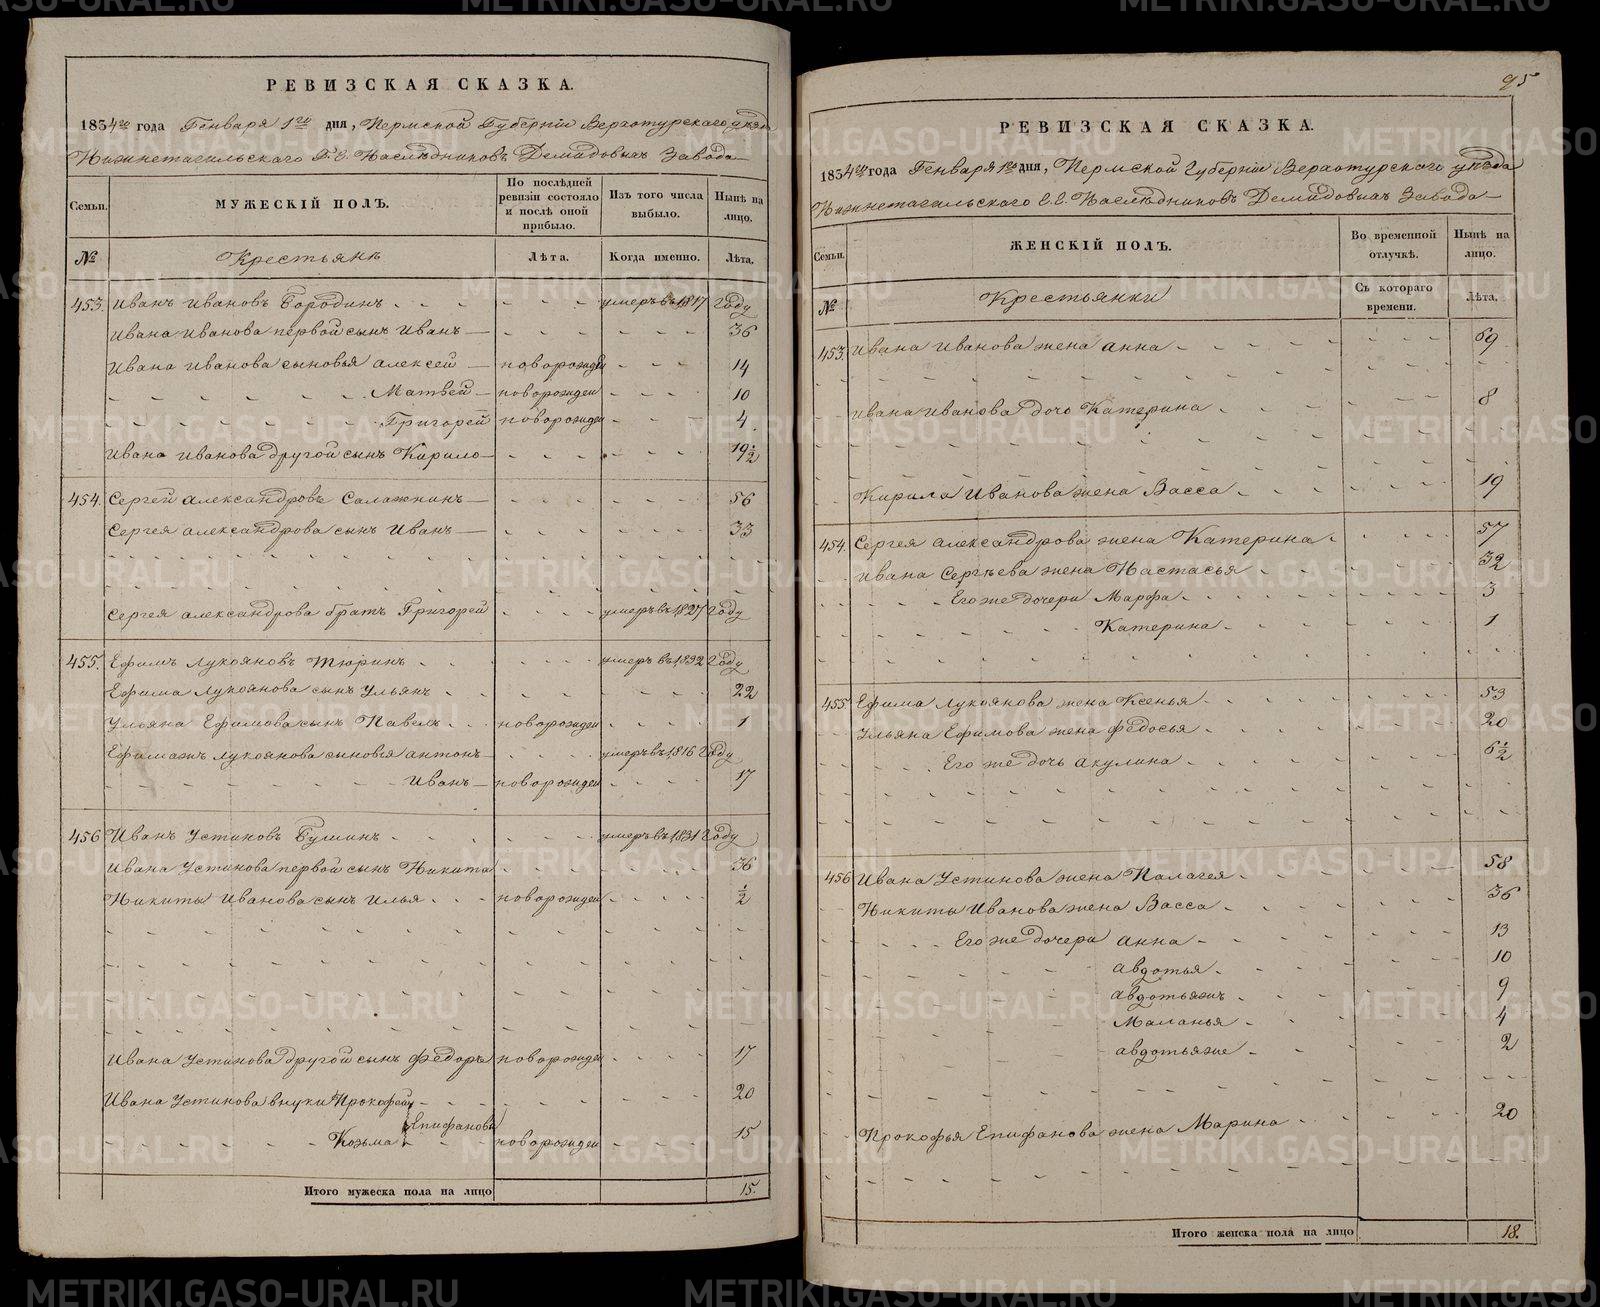 РЕВИЗСКАЯ СКАЗКА.
1834го года Генваря 1го дня, Пермской Губернiи Верхотурскаго уезда
Нижнетагильскаго Г. Г. Наследниковъ Демидовыхъ Завода
Семьи.
МУЖЕСКIЙ ПОЛЪ.
По последней ревизiи состояло и послѣ оной прибыло.
Изъ того числа выбыло.
Нынѣ на лицо.
№
Крестьянъ
Лѣта.
Когда именно.
Лѣта.
453. Иванъ Ивановъ Бородинъ умеръ въ 1817 Году
Ивана Иванова первой сынъ Иванъ 36
Ивана Иванова сыновья Алексей новорожден 14
Матвей новорожден 10
Григорей новорожден 4.
Ивана Иванова другой сынъ Кирило 19 1/2
454. Сергей Александровъ Салажнинъ 56
Сергея Александрова сынъ Иванъ 33
Сергея Александрова братъ Григорей умеръ въ 1827 Году
455. Ефимъ Лукояновъ Тюринъ умеръ въ 1832 Году
Ефима Лукоянова сынъ Ульянъ 22
Ульяна Ефимова сынъ Павелъ новорожден 1
Ефимажъ Лукоянова сыновья Антонъ умеръ въ 1816 Году
Иванъ новорожден 17
456 Иванъ Устиновъ Бушинъ умеръ въ 1831 Году
Ивана Устинова первой сынъ Никита 36
Никиты Иванова сынъ Илья новорожден 1/2
Ивана Устинова другой сынъ Федоръ новорожден 17
Ивана Устинова внуки Прокофей 20
Епифановы
Козьма новорожден 15
Итого мужеска пола на лицо 15.
95
РЕВИЗСКАЯ СКАЗКА.
1834го года Генваря 1го дня, Пермской Губернiи Верхотурскаго уезда
Нижнетагильскаго Г. Г. Наследниковъ Демидовыхъ Завода
Семьи.
ЖЕНСКIЙ ПОЛЪ.
Во временной отлучкѣ.
Нынѣ на лицо.
№
Крестьянки
Съ котораго времени.
Лѣта.
453. Ивана Иванова жена Анна 69
Ивана Иванова дочь Катерина 8
Кирила Иванова жена Васса 19
454. Сергея Александрова жена Катерина 57
Ивана Сергѣева жена Настасья 32
Его же дочери Марфа 3
Катерина 1
455 Ефима Лукоянова жена Ксенья 53
Ульяна Ефимова жена Федосья 20
Его же дочь Акулина 6 1/2
456 Ивана Устинова жена Палагея 58
Никиты Иванова жена Васса 36
Его же дочери Анна 13
Авдотья 10
Авдотьяжъ 9
Маланья 4
Авдотьяже 2
Прокофья Епифанова жена Марина 20
Итого женска пола на лицо 18.
METRIKI.GASO-URAL.RU